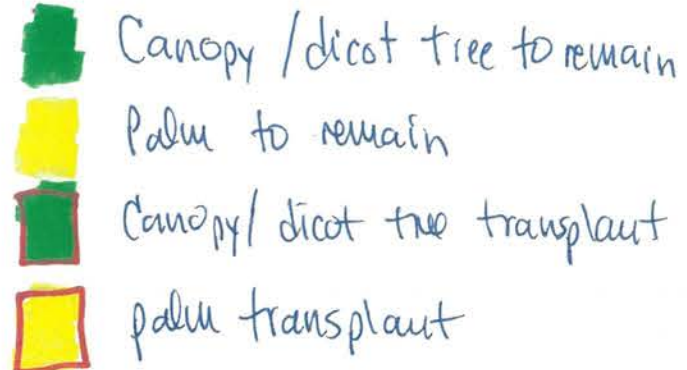 Canopy /dicot tree to remain
Palm to remain
Canopy/ dicot tree transplant
palm transplant